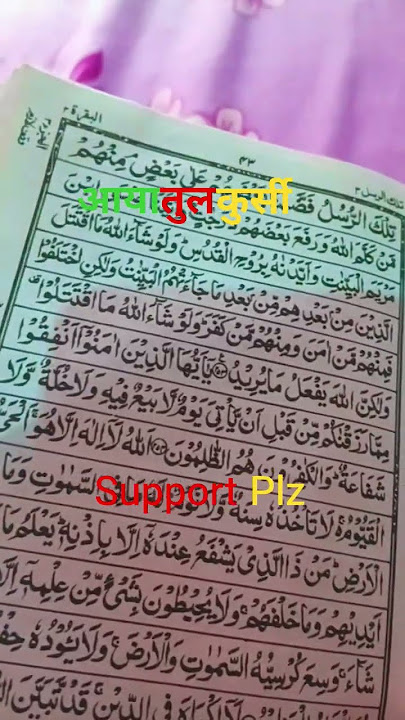 البقرة ٢
٤٣
تلك الرسل ٣
تِلْكَ الرُّسُلُ عَلٰی بَعْضٍ مِنْهُمْ
आयातुल कुर्सी
مَّنْ كَلَّمَ اللّٰهُ وَرَفَعَ بَعْضَهُمْ
مَرْیَمَ الْبَیِّنٰتِ وَاَیَّدْنٰهُ بِرُوْحِ الْقُدُسِ وَلَوْ شَآءَ اللّٰهُ مَا اقْتَتَلَ
الَّذِیْنَ مِنْ بَعْدِهِمْ مِّنْ بَعْدِ مَا جَآءَتْهُمُ الْبَیِّنٰتُ وَلٰكِنِ اخْتَلَفُوْا
فَمِنْهُمْ مَّنْ اٰمَنَ وَمِنْهُمْ مَّنْ كَفَرَ وَلَوْ شَآءَ اللّٰهُ مَا اقْتَتَلُوْا
وَلٰكِنَّ اللّٰهَ یَفْعَلُ مَا یُرِیْدُ یٰۤاَیُّهَا الَّذِیْنَ اٰمَنُوْۤا اَنْفِقُوْا
مِمَّا رَزَقْنٰكُمْ مِّنْ قَبْلِ اَنْ یَّاْتِیَ یَوْمٌ لَّا بَیْعٌ فِیْهِ وَلَا خُلَّةٌ وَّلَا
شَفَاعَةٌ وَالْكٰفِرُوْنَ هُمُ الظّٰلِمُوْنَ اَللّٰهُ لَاۤ اِلٰهَ اِلَّا هُوَ اَلْحَیُّ
الْقَیُّوْمُ لَا تَاْخُذُهٗ سِنَةٌ وَّلَا السَّمٰوٰتِ وَمَا
Support Plz
الْاَرْضِ مَنْ ذَا الَّذِیْ یَشْفَعُ عِنْدَهٗۤ اِلَّا بِاِذْنِهٖ یَعْلَمُ مَا
اَیْدِیْهِمْ وَمَا خَلْفَهُمْ وَلَا یُحِیْطُوْنَ بِشَیْءٍ مِّنْ عِلْمِهٖۤ اِلَّا
شَآءَ وَسِعَ كُرْسِیُّهُ السَّمٰوٰتِ وَالْاَرْضَ وَلَا یَـُٔوْدُهٗ
فِی الدِّیْنِ قَدْ تَّبَیَّنَ